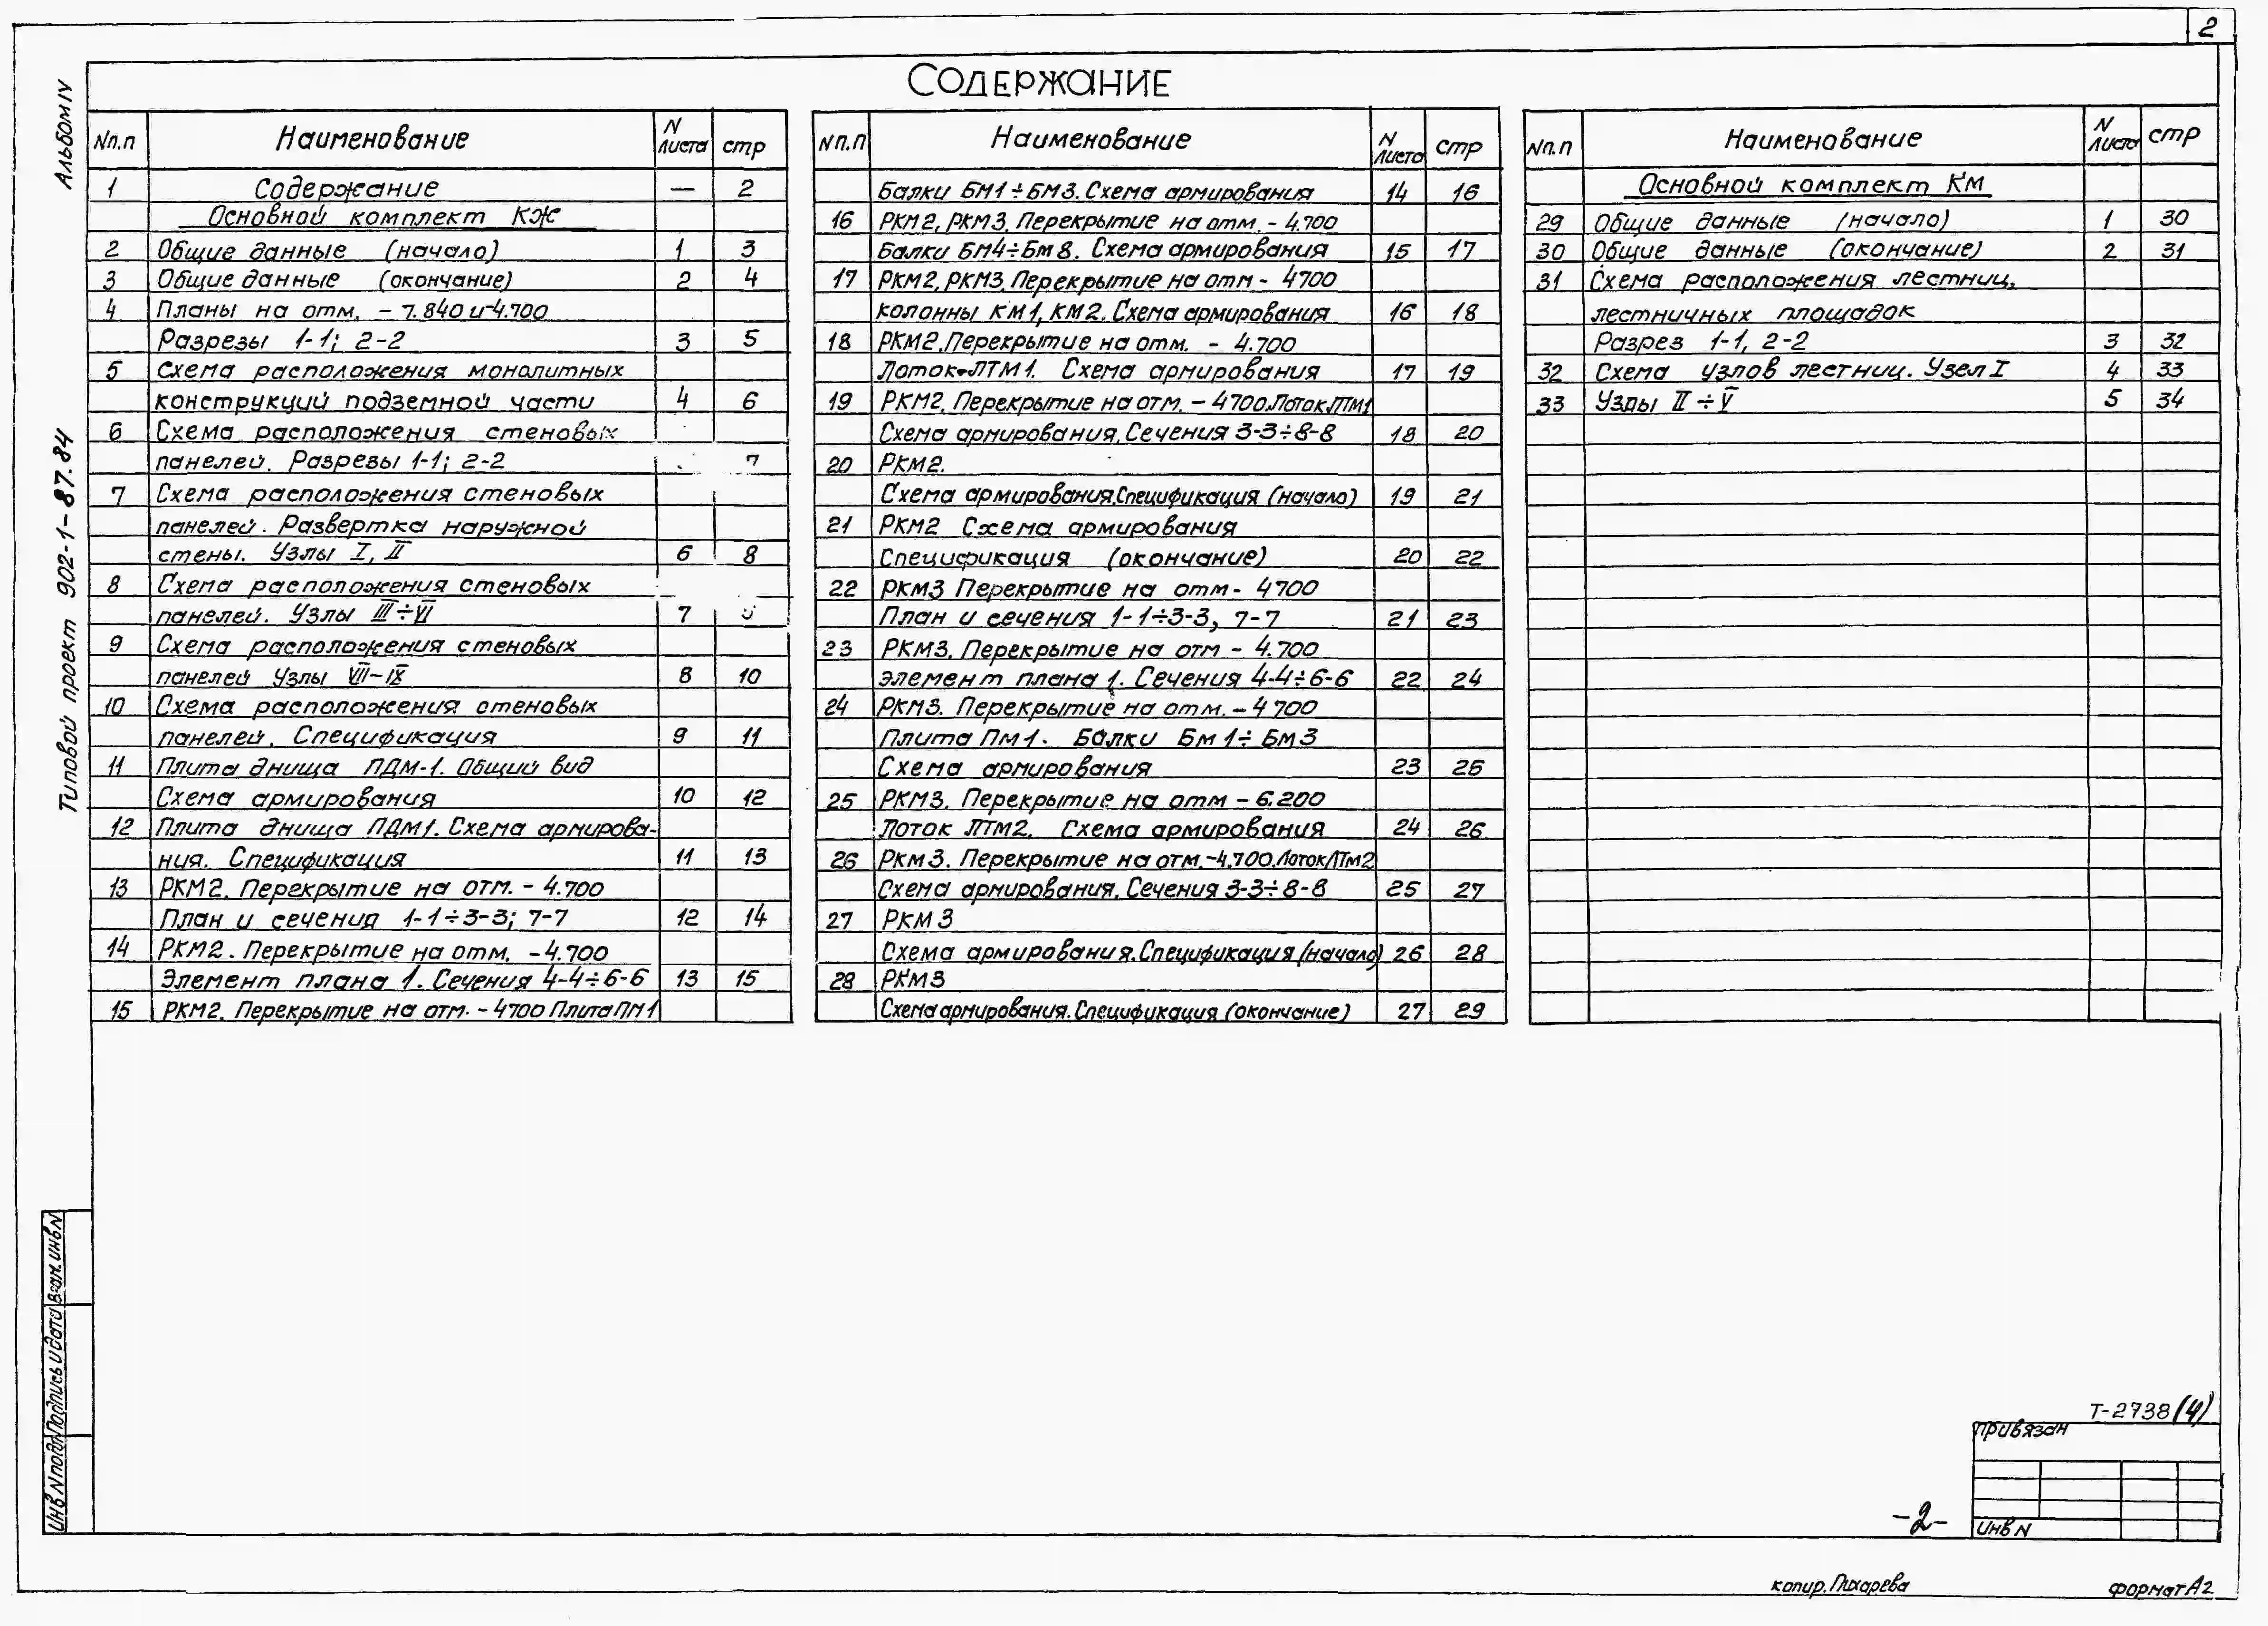 2
Содержание
Альбом IV
Типовой проект 902-1-87.84
Nп.п Наименование N листа стр
1 Содержание — 2
Основной комплект КЖ
2 Общие данные (начало) 1 3
3 Общие данные (окончание) 2 4
4 Планы на отм. - 7.840 и -4.700
Разрезы 1-1; 2-2 3 5
5 Схема расположения монолитных
конструкций подземной части 4 6
6 Схема расположения стеновых
панелей. Разрезы 1-1; 2-2 7
7 Схема расположения стеновых
панелей. Развертка наружной
стены. Узлы I, II 6 8
8 Схема расположения стеновых
панелей. Узлы III÷VI 7
9 Схема расположения стеновых
панелей Узлы VII-IX 8 10
10 Схема расположения стеновых
панелей. Спецификация 9 11
11 Плита днища ПДМ-1. Общий вид
Схема армирования 10 12
12 Плита днища ПДМ1. Схема армирова-
ния. Спецификация 11 13
13 РКМ2. Перекрытие на отм. - 4.700
План и сечения 1-1÷3-3; 7-7 12 14
14 РКМ2. Перекрытие на отм. -4.700
Элемент плана 1. Сечения 4-4÷6-6 13 15
15 РКМ2. Перекрытие на отм. - 4700 Плита ПМ1
Nп.п Наименование N листа стр
Балки БМ1÷БМ3. Схема армирования 14 16
16 РКМ2, РКМ3. Перекрытие на отм. - 4.700
Балки БМ4÷БМ8. Схема армирования 15 17
17 РКМ2, РКМ3. Перекрытие на отм - 4700
колонны КМ1, КМ2. Схема армирования 16 18
18 РКМ2. Перекрытие на отм. - 4.700
Лоток ЛТМ1. Схема армирования 17 19
19 РКМ2. Перекрытие на отм. - 4700. Лоток ЛТМ1
Схема армирования. Сечения 3-3÷8-8 18 20
20 РКМ2.
Схема армирования. Спецификация (начало) 19 21
21 РКМ2 Схема армирования
Спецификация (окончание) 20 22
22 РКМ3 Перекрытие на отм - 4700
План и сечения 1-1÷3-3, 7-7 21 23
23 РКМ3. Перекрытие на отм - 4.700
элемент плана 1. Сечения 4-4÷6-6 22 24
24 РКМ3. Перекрытие на отм. - 4700
Плита Пм1. Балки Бм1÷Бм3
Схема армирования 23 25
25 РКМ3. Перекрытие на отм - 6.200
Лоток ЛТм2. Схема армирования 24 26
26 Ркм3. Перекрытие на отм. -4.700. Лоток ЛТм2
Схема армирования. Сечения 3-3÷8-8 25 27
27 РКМ3
Схема армирования. Спецификация (начало) 26 28
28 РКМ3
Схема армирования. Спецификация (окончание) 27 29
Nп.п Наименование N листа стр
Основной комплект КМ
29 Общие данные (начало) 1 30
30 Общие данные (окончание) 2 31
31 Схема расположения лестниц,
лестничных площадок
Разрез 1-1, 2-2 3 32
32 Схема узлов лестниц. Узел I 4 33
33 Узлы II÷V 5 34
Взам. инв N
Подпись и дата
Инв N подл.
Т-2738 (4)
Привязан
Инв N
-2-
копир. Пихарева
формат А2